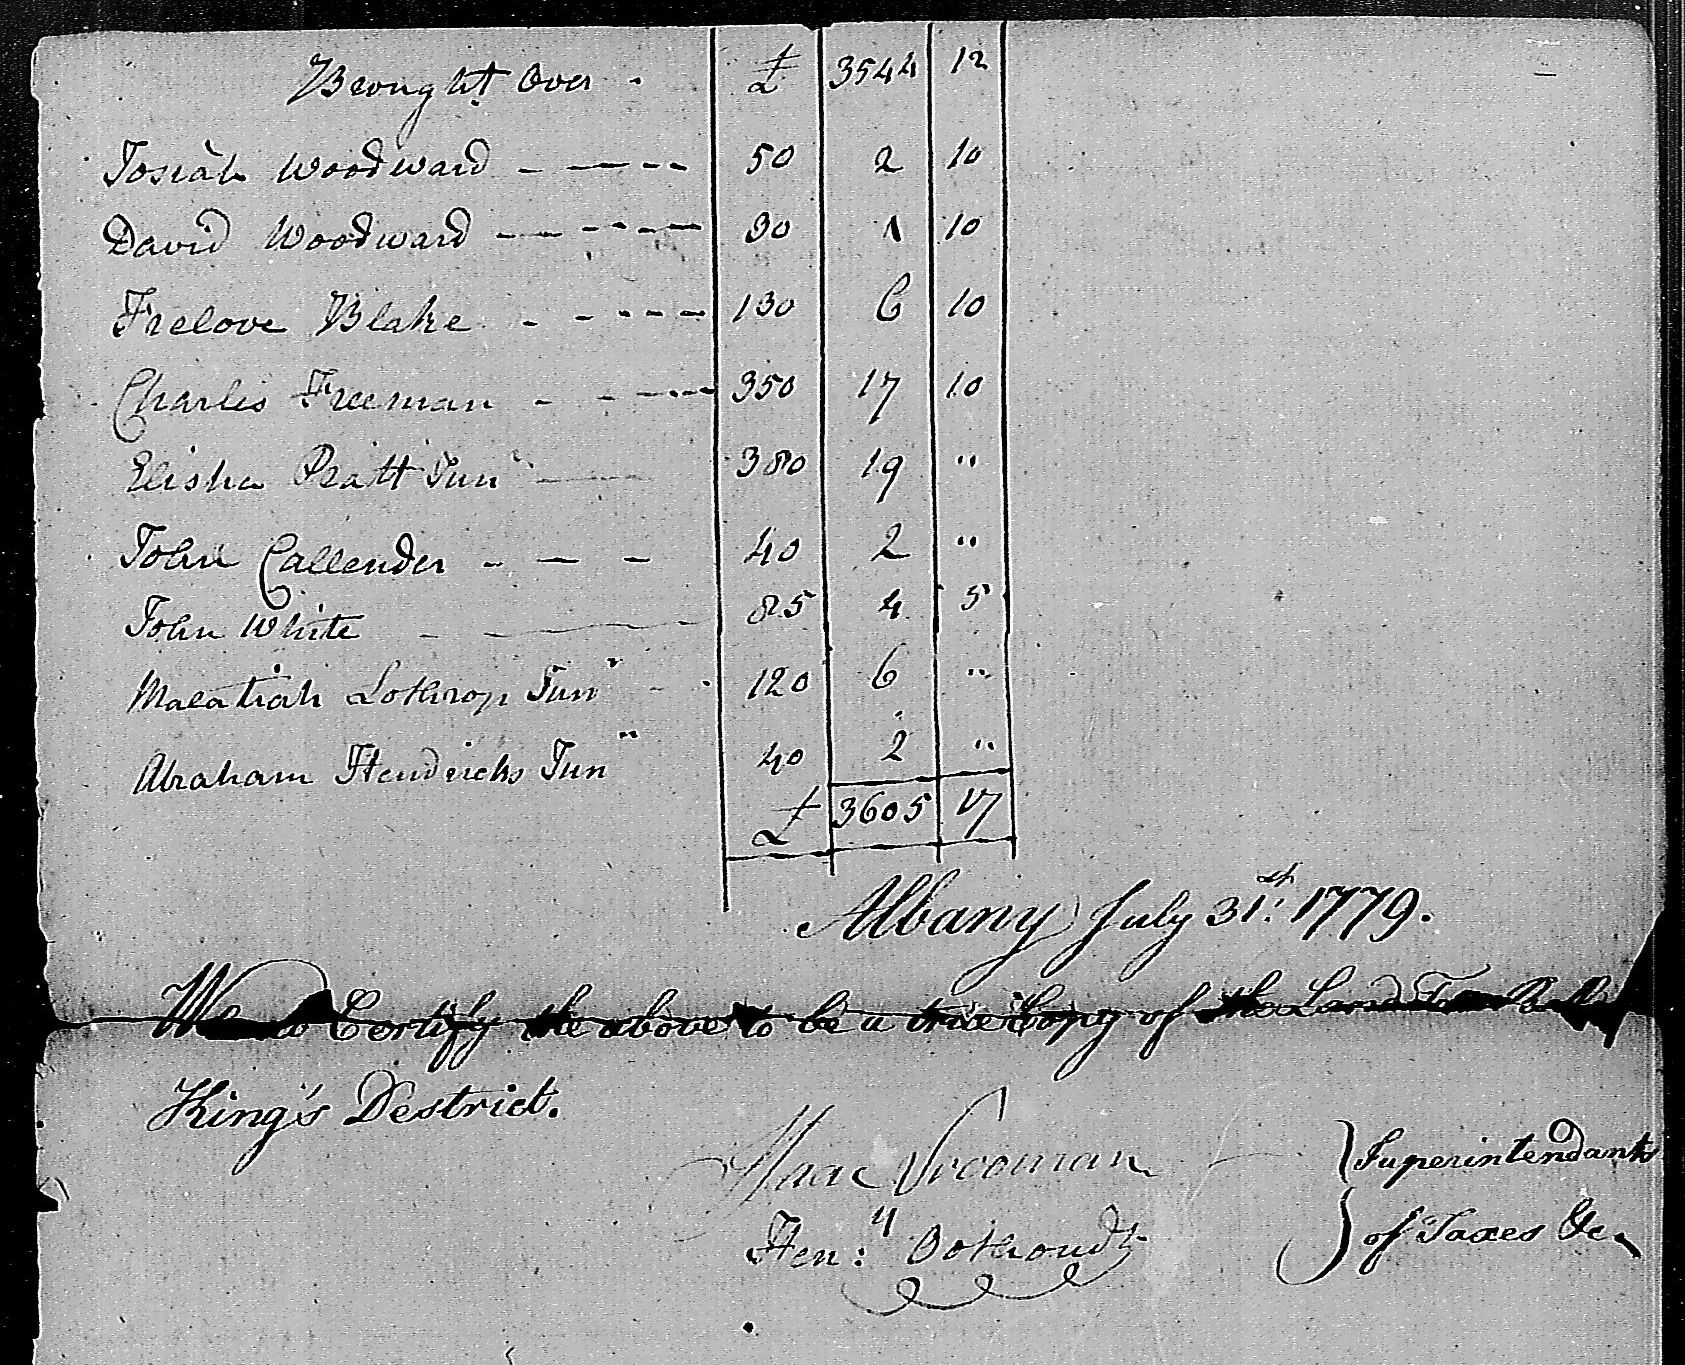 Brought Over - £ 3544 12
Josiah Woodward - - - - 50 2 10
David Woodward - - - - - 30 1 10
Frelove Blake - - - - - 130 6 10
Charles Freeman - - - - - 350 17 10
Elisha Pratt Junr - - 380 19 "
John Callender - - - 40 2 "
John White - - 85 4 5
Malatiah Lothrop Junr - - 120 6 "
Abraham Hendricks Junr 40 2 "
£ 3605 17
Albany July 31st: 1779.
We do Certify the above to be a true Copy of the Land Tax
King's Destrict.
Isaac Vrooman
Hen:y Oothoudt
} Superintendants
} of Taxes &c.